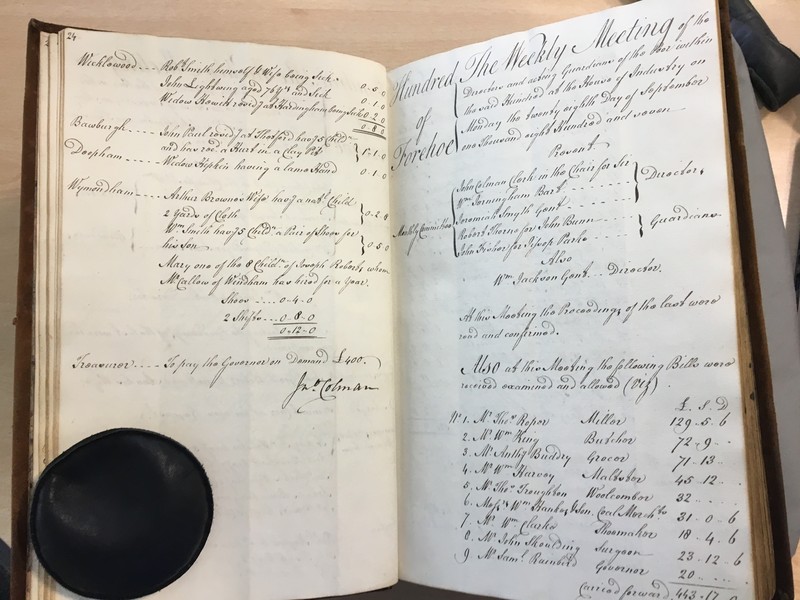 24
Wicklewood .... Robt. Smith himself & Wife being Sick. 0 - 5 - 0
John Lightwing aged 76 Yrs. and Sick 0 - 1 - 0
Widow Howich resid? at Hardingham being Sick 0 2 0
0 - 8 - 0
Bawburgh .... John Paul resid? at Thetford hav? 5 Childn.
and has rec'd a Hurt in a Clay Pit 1 - 1 - 0
Deepham .... Widow Hipkin having a lame Hand 0 - 1 - 0
Wymondham .... Arthur Brownes Wife hav? a natl. Child
2 Yards of Cloth
Wm. Smith hav? 5 Childn. a Pair of Shoes for
his Son 0 5 0
Mary one of the 8 Childn. of Joseph Roberts whom
Mr. Callow of Windham has hired for a Year.
Shoes .... 0 - 4 - 0
2 Shifts .... 0 - 8 - 0
0 - 12 - 0
Treasurer .... To pay the Governor on Demand £400.
Jno. Colman
Hundred of Forehoe
The Weekly Meeting of the
Directors and acting Guardians of the Poor within
the said Hundred at the House of Industry on
Monday the twenty eighth Day of September
one Thousand eight Hundred and seven
Present
Monthly Committee
John Colman Clerk in the Chair for Sir
Wm. Jerningham Bart.
Jeremiah Smyth Gent.
Directors
Robert Thorne for John Bunn
John Fisher for Jessop Parke
Guardians
Also
Wm. Jackson Gent .. Director.
At this Meeting the Proceedings of the last were
read and confirmed.
Also at this Meeting the following Bills were
received examined and allowed (Viz)
£. S. D
No. 1. Mr. Thos. Roper Miller 129 .. 5 .. 6
2. Mr. Wm. King Butcher 72 .. 9 ..
3. Mr. Anthy. Buddry Grocer 71 .. 13 ..
4. Mr. Wm. Harvey Maltster 45 .. 12 ..
5. Mr. Thos. Troughton Woolcomber 32 .. ..
6. Messrs. Wm. Hanks & Son Coal Merchts. 31 .. 0 .. 6
7. Mr. Wm. Clarke Shoemaker 18 .. 4 .. 6
8. Mr. John Skoulding Surgeon 23 .. 12 .. 6
9. Mr. Saml. Rainbird Governor 20 .. ..
Carried forward 443 .. 17